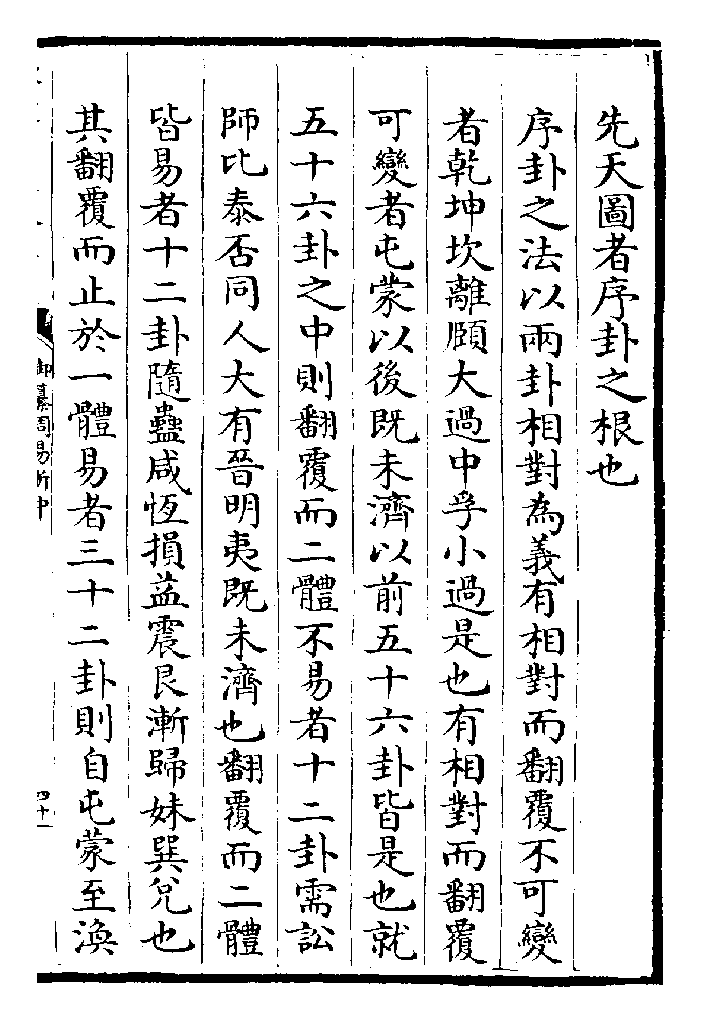 先天圖者序卦之根也
序卦之法以兩卦相對為義有相對而翻覆不可變
者乾坤坎離頤大過中孚小過是也有相對而翻覆
可變者屯蒙以後既未濟以前五十六卦皆是也就
五十六卦之中則翻覆而二體不易者十二卦需訟
師比泰否同人大有晉明夷既未濟也翻覆而二體
皆易者十二卦隨蠱咸恆損益震艮漸歸妹巽兌也
其翻覆而止於一體易者三十二卦則自屯蒙至渙
御纂周易折中
四十一